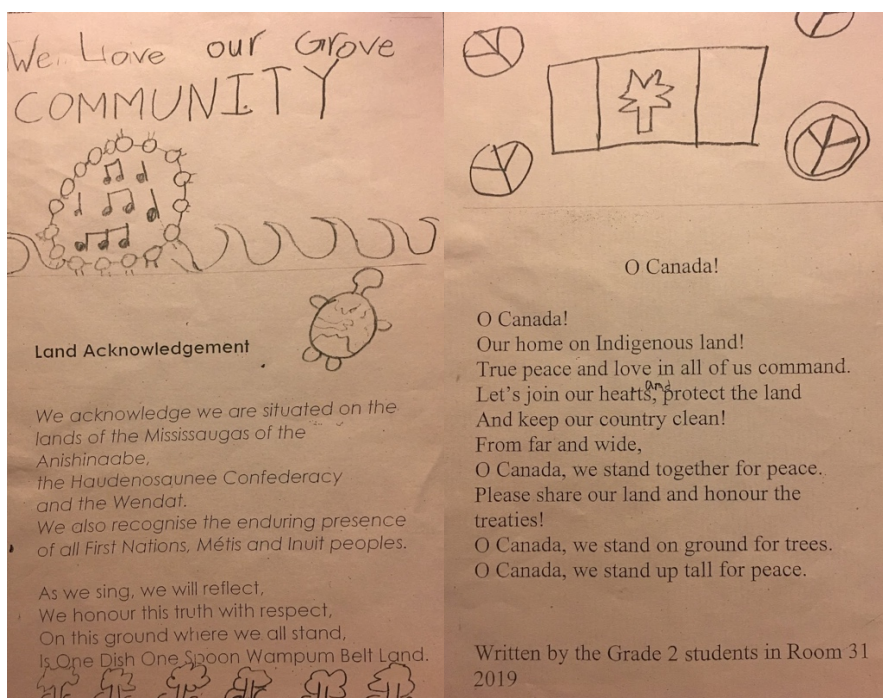 We Love our Grove
COMMUNITY
Land Acknowledgement
We acknowledge we are situated on the
lands of the Mississaugas of the
Anishinaabe,
the Haudenosaunee Confederacy
and the Wendat.
We also recognise the enduring presence
of all First Nations, Métis and Inuit peoples.
As we sing, we will reflect,
We honour this truth with respect,
On this ground where we all stand,
Is One Dish One Spoon Wampum Belt Land.
O Canada!
O Canada!
Our home on Indigenous land!
True peace and love in all of us command.
Let's join our hearts, and protect the land
And keep our country clean!
From far and wide,
O Canada, we stand together for peace.
Please share our land and honour the
treaties!
O Canada, we stand on ground for trees.
O Canada, we stand up tall for peace.
Written by the Grade 2 students in Room 31
2019